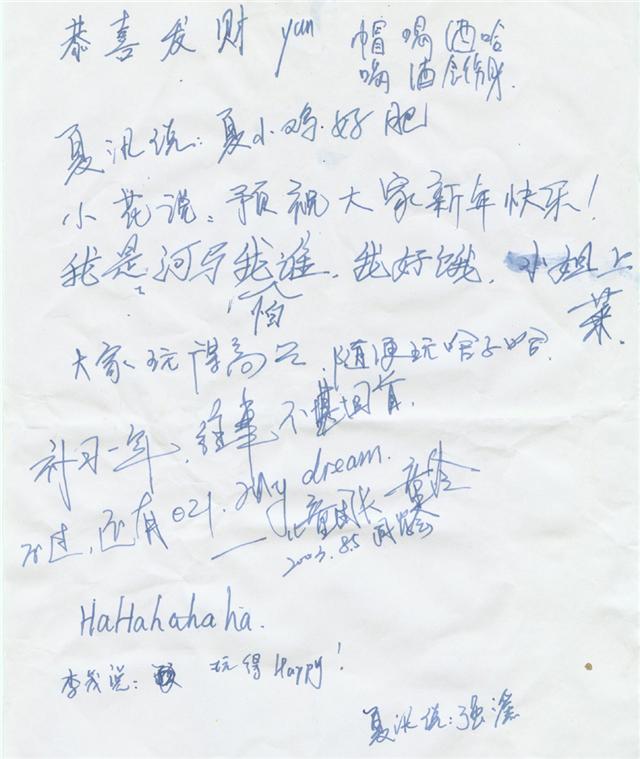 恭喜发财 yan 帽喝酒哈
喝酒
夏汛说:夏小鸡.好肥
小花说:预祝大家新年快乐!
我是河马我谁怕.我好饿.小姐上菜.
大家玩得高兴,随便玩哈子哈.
补习一年,往事不堪回首.
不过,还有021. my dream.
2003.8.5
HaHahahaha.
李戈说: 玩得Happy!
夏汛说:强滏